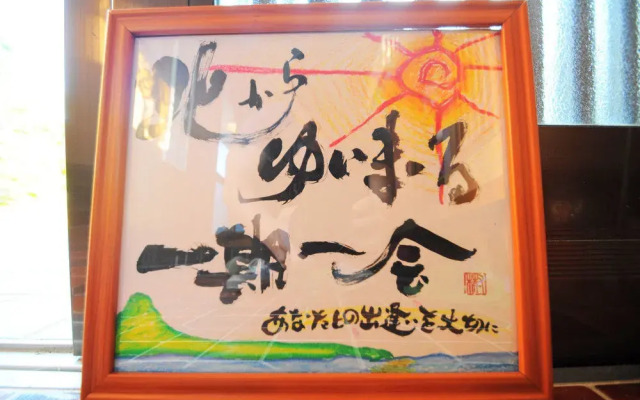 北から
ゆいまーる
一期一会
あなたとの出逢いを大切に